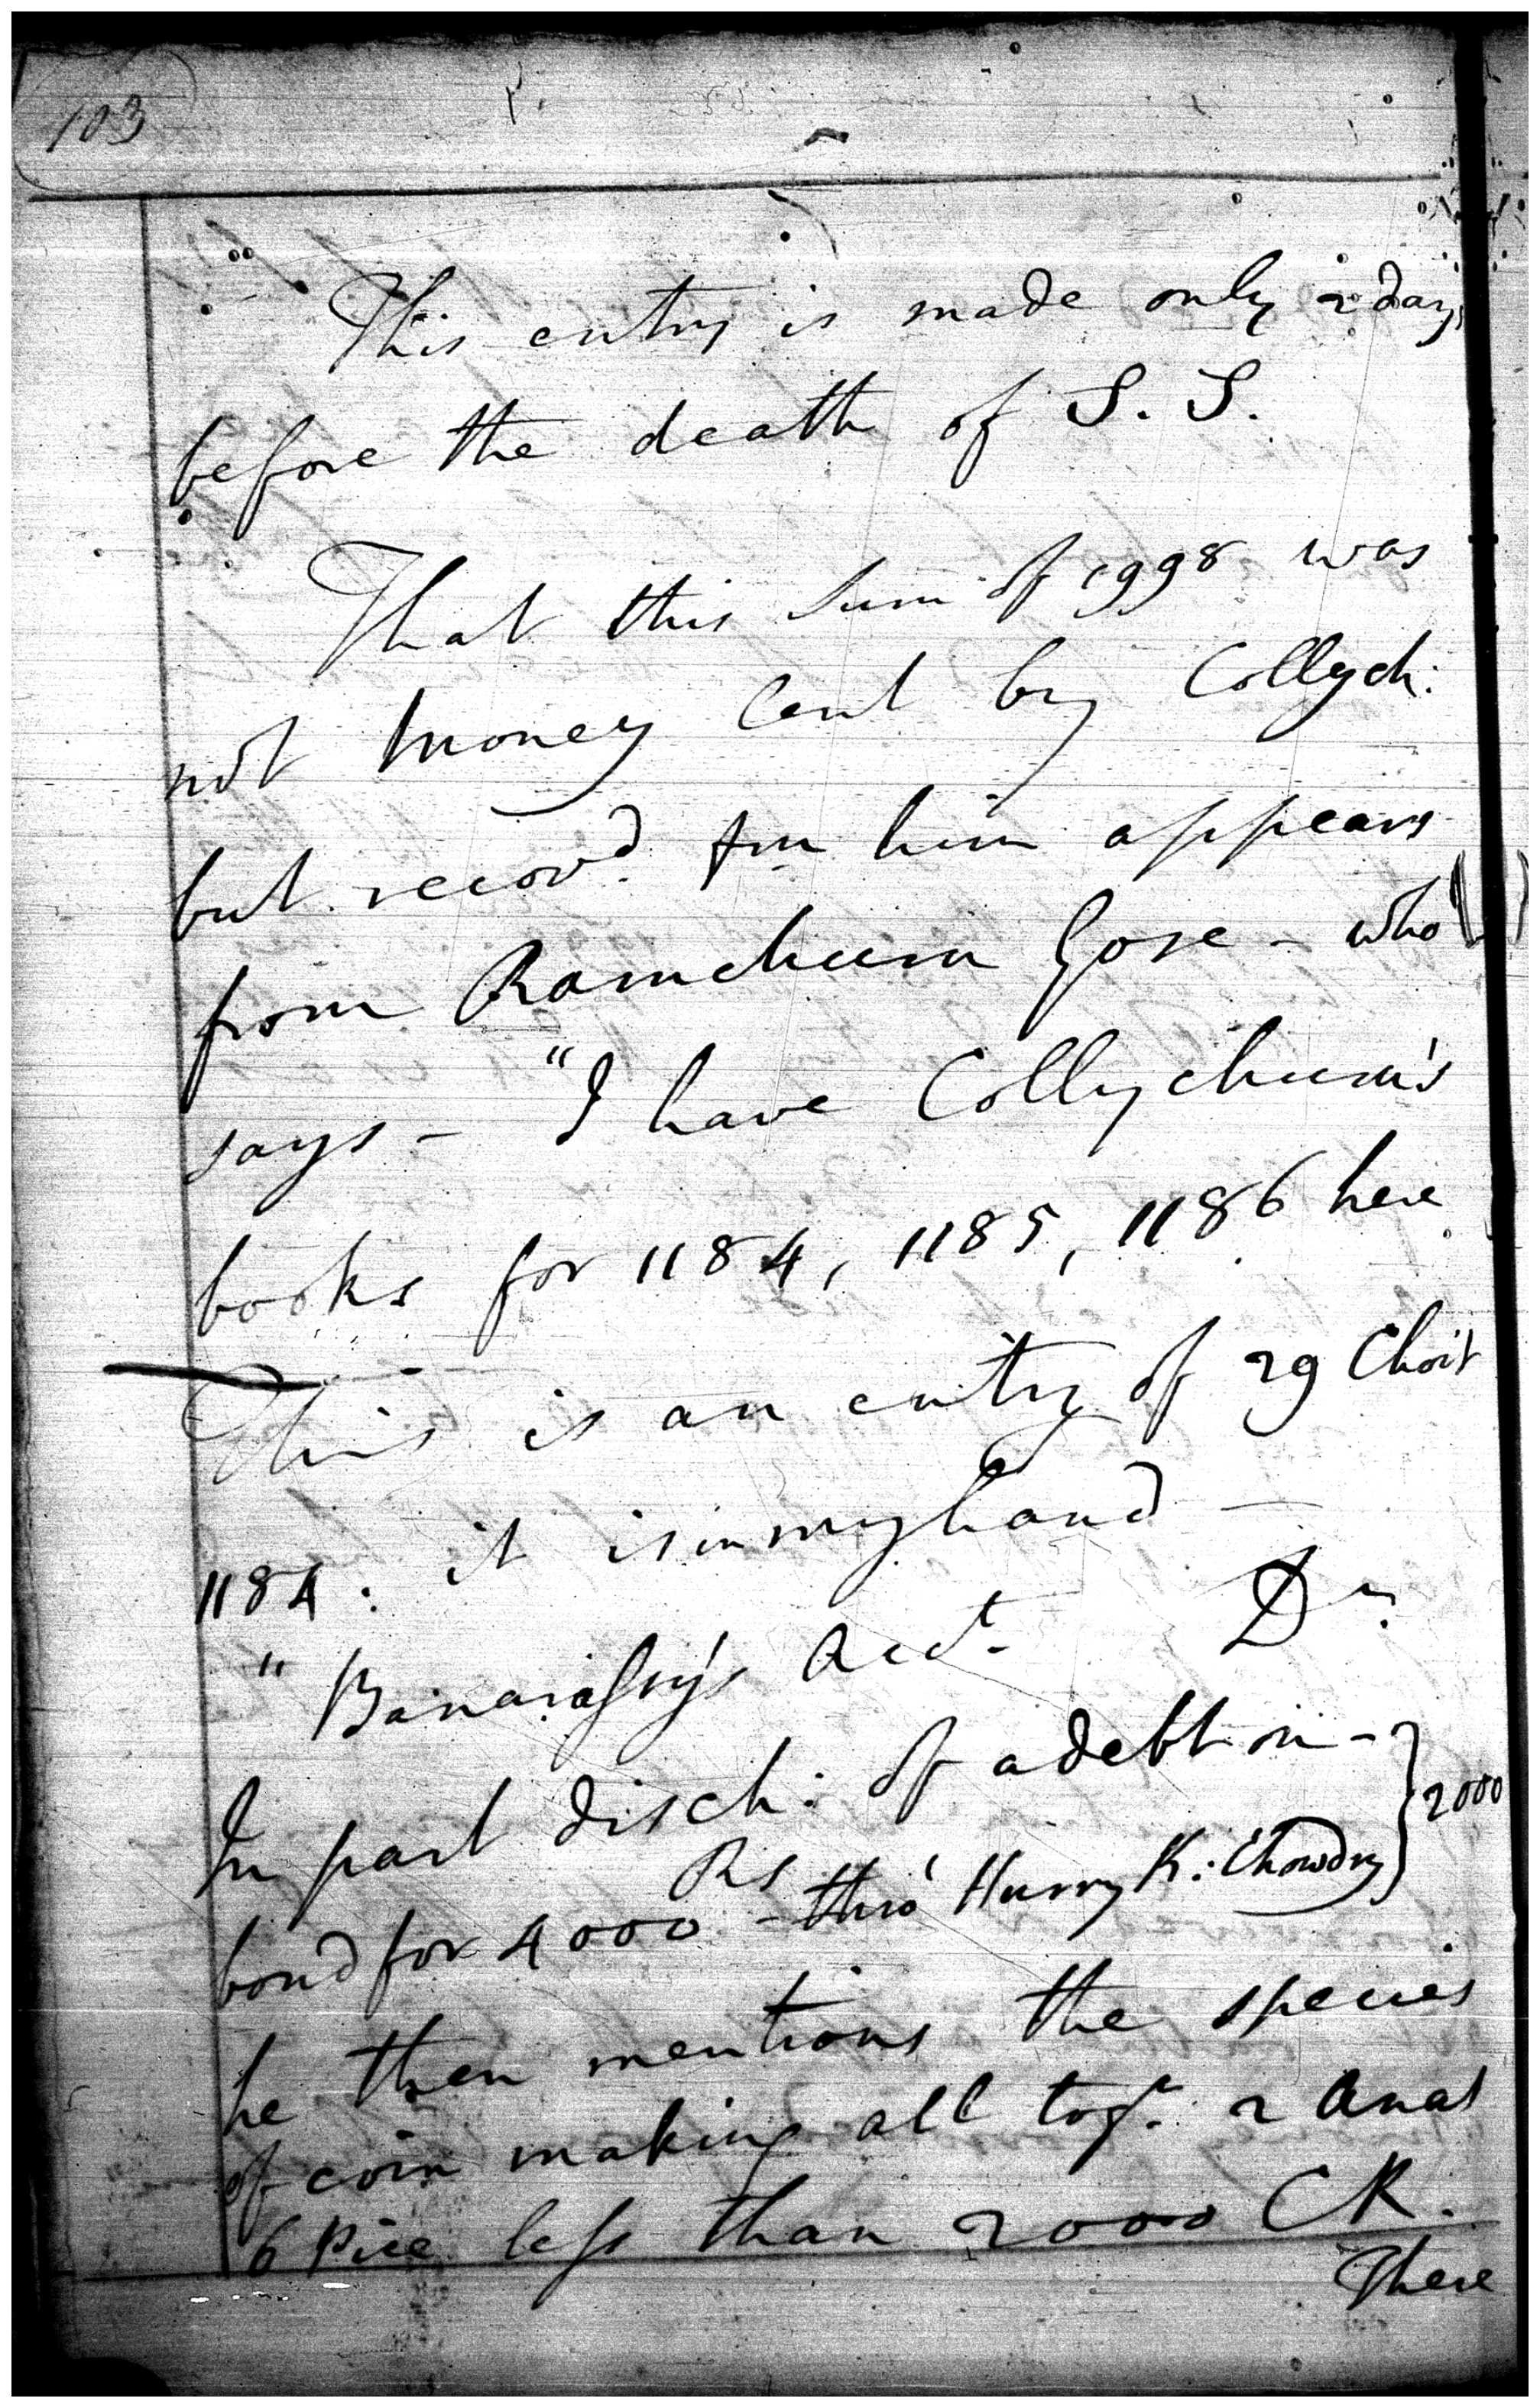 103
This entry is made only 2 days
before the death of S. S.
That this sum of 1998 was
not money lent by Collych:
but recov.d fm him appears
from Ramchurn Gose - who
says - "I have Collychurn's
books for 1184, 1185, 1186 here
This is an entry of 29 Choit
1184: it is in my hand -
" Acct. Dr.
In part disch: of a debt on - } 2000
bond for 4000 Rs - thro' Hurry K: Chowdry
he then mentions the species
of coin making all togr. 2 Anas
6 Pice less than 2000 CR.
There